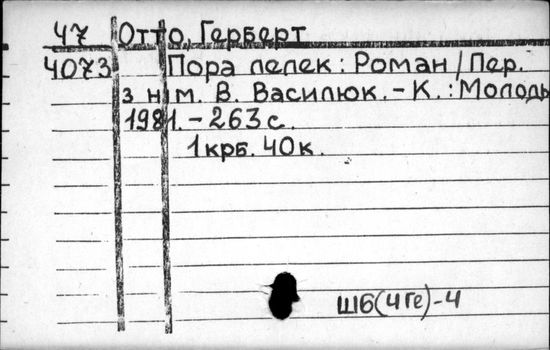 47 Отто, Герберт
4073 Пора лелек : Роман / Пер.
з нім. В. Василюк. - К. : Молодь
1981. - 263 с.
1 крб. 40 к.
Ш6(4Ге)-4